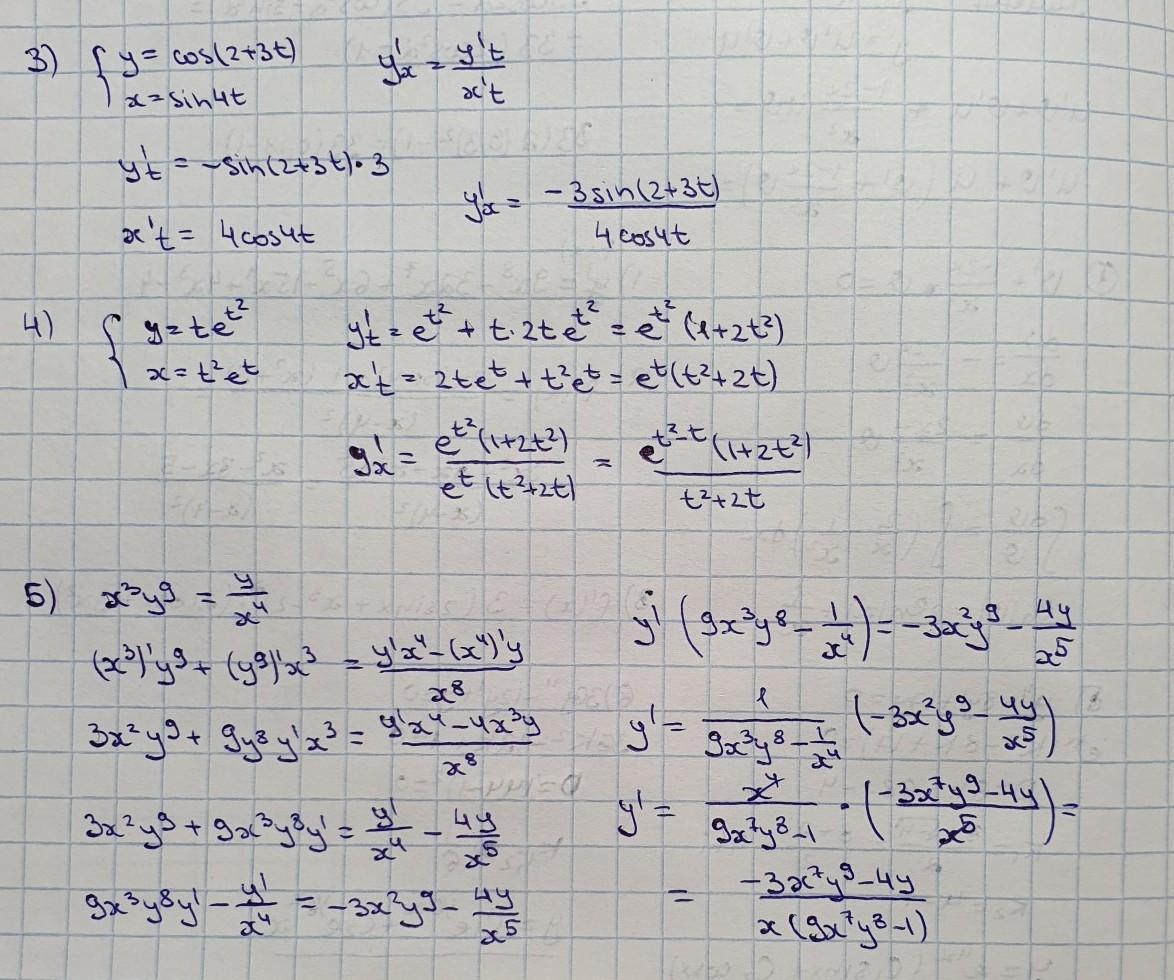 3) { y = cos(2+3t)    y'x = y't / x't
x = sin4t
y't = -sin(2+3t)·3
x't = 4cos4t    y'x = -3sin(2+3t) / 4cos4t
4) { y = te^(t²)    y't = e^(t²) + t·2te^(t²) = e^(t²)(1+2t²)
x = t²e^t    x't = 2te^t + t²e^t = e^t(t²+2t)
y'x = e^(t²)(1+2t²) / e^t(t²+2t) = e^(t²-t)(1+2t²) / t²+2t
5) x³y⁹ = y/x⁴
(x³)'y⁹ + (y⁹)'x³ = y'x⁴-(x⁴)'y / x⁸
3x²y⁹ + 9y⁸y'x³ = y'x⁴-4x³y / x⁸
3x²y⁹ + 9x³y⁸y' = y'/x⁴ - 4y/x⁵
9x³y⁸y' - y'/x⁴ = -3x²y⁹ - 4y/x⁵
y'(9x³y⁸ - 1/x⁴) = -3x²y⁹ - 4y/x⁵
y' = 1 / 9x³y⁸ - 1/x⁴ (-3x²y⁹ - 4y/x⁵)
y' = x⁴ / 9x⁷y⁸-1 · (-3x⁷y⁹-4y / x⁵) =
= -3x⁷y⁹-4y / x(9x⁷y⁸-1)